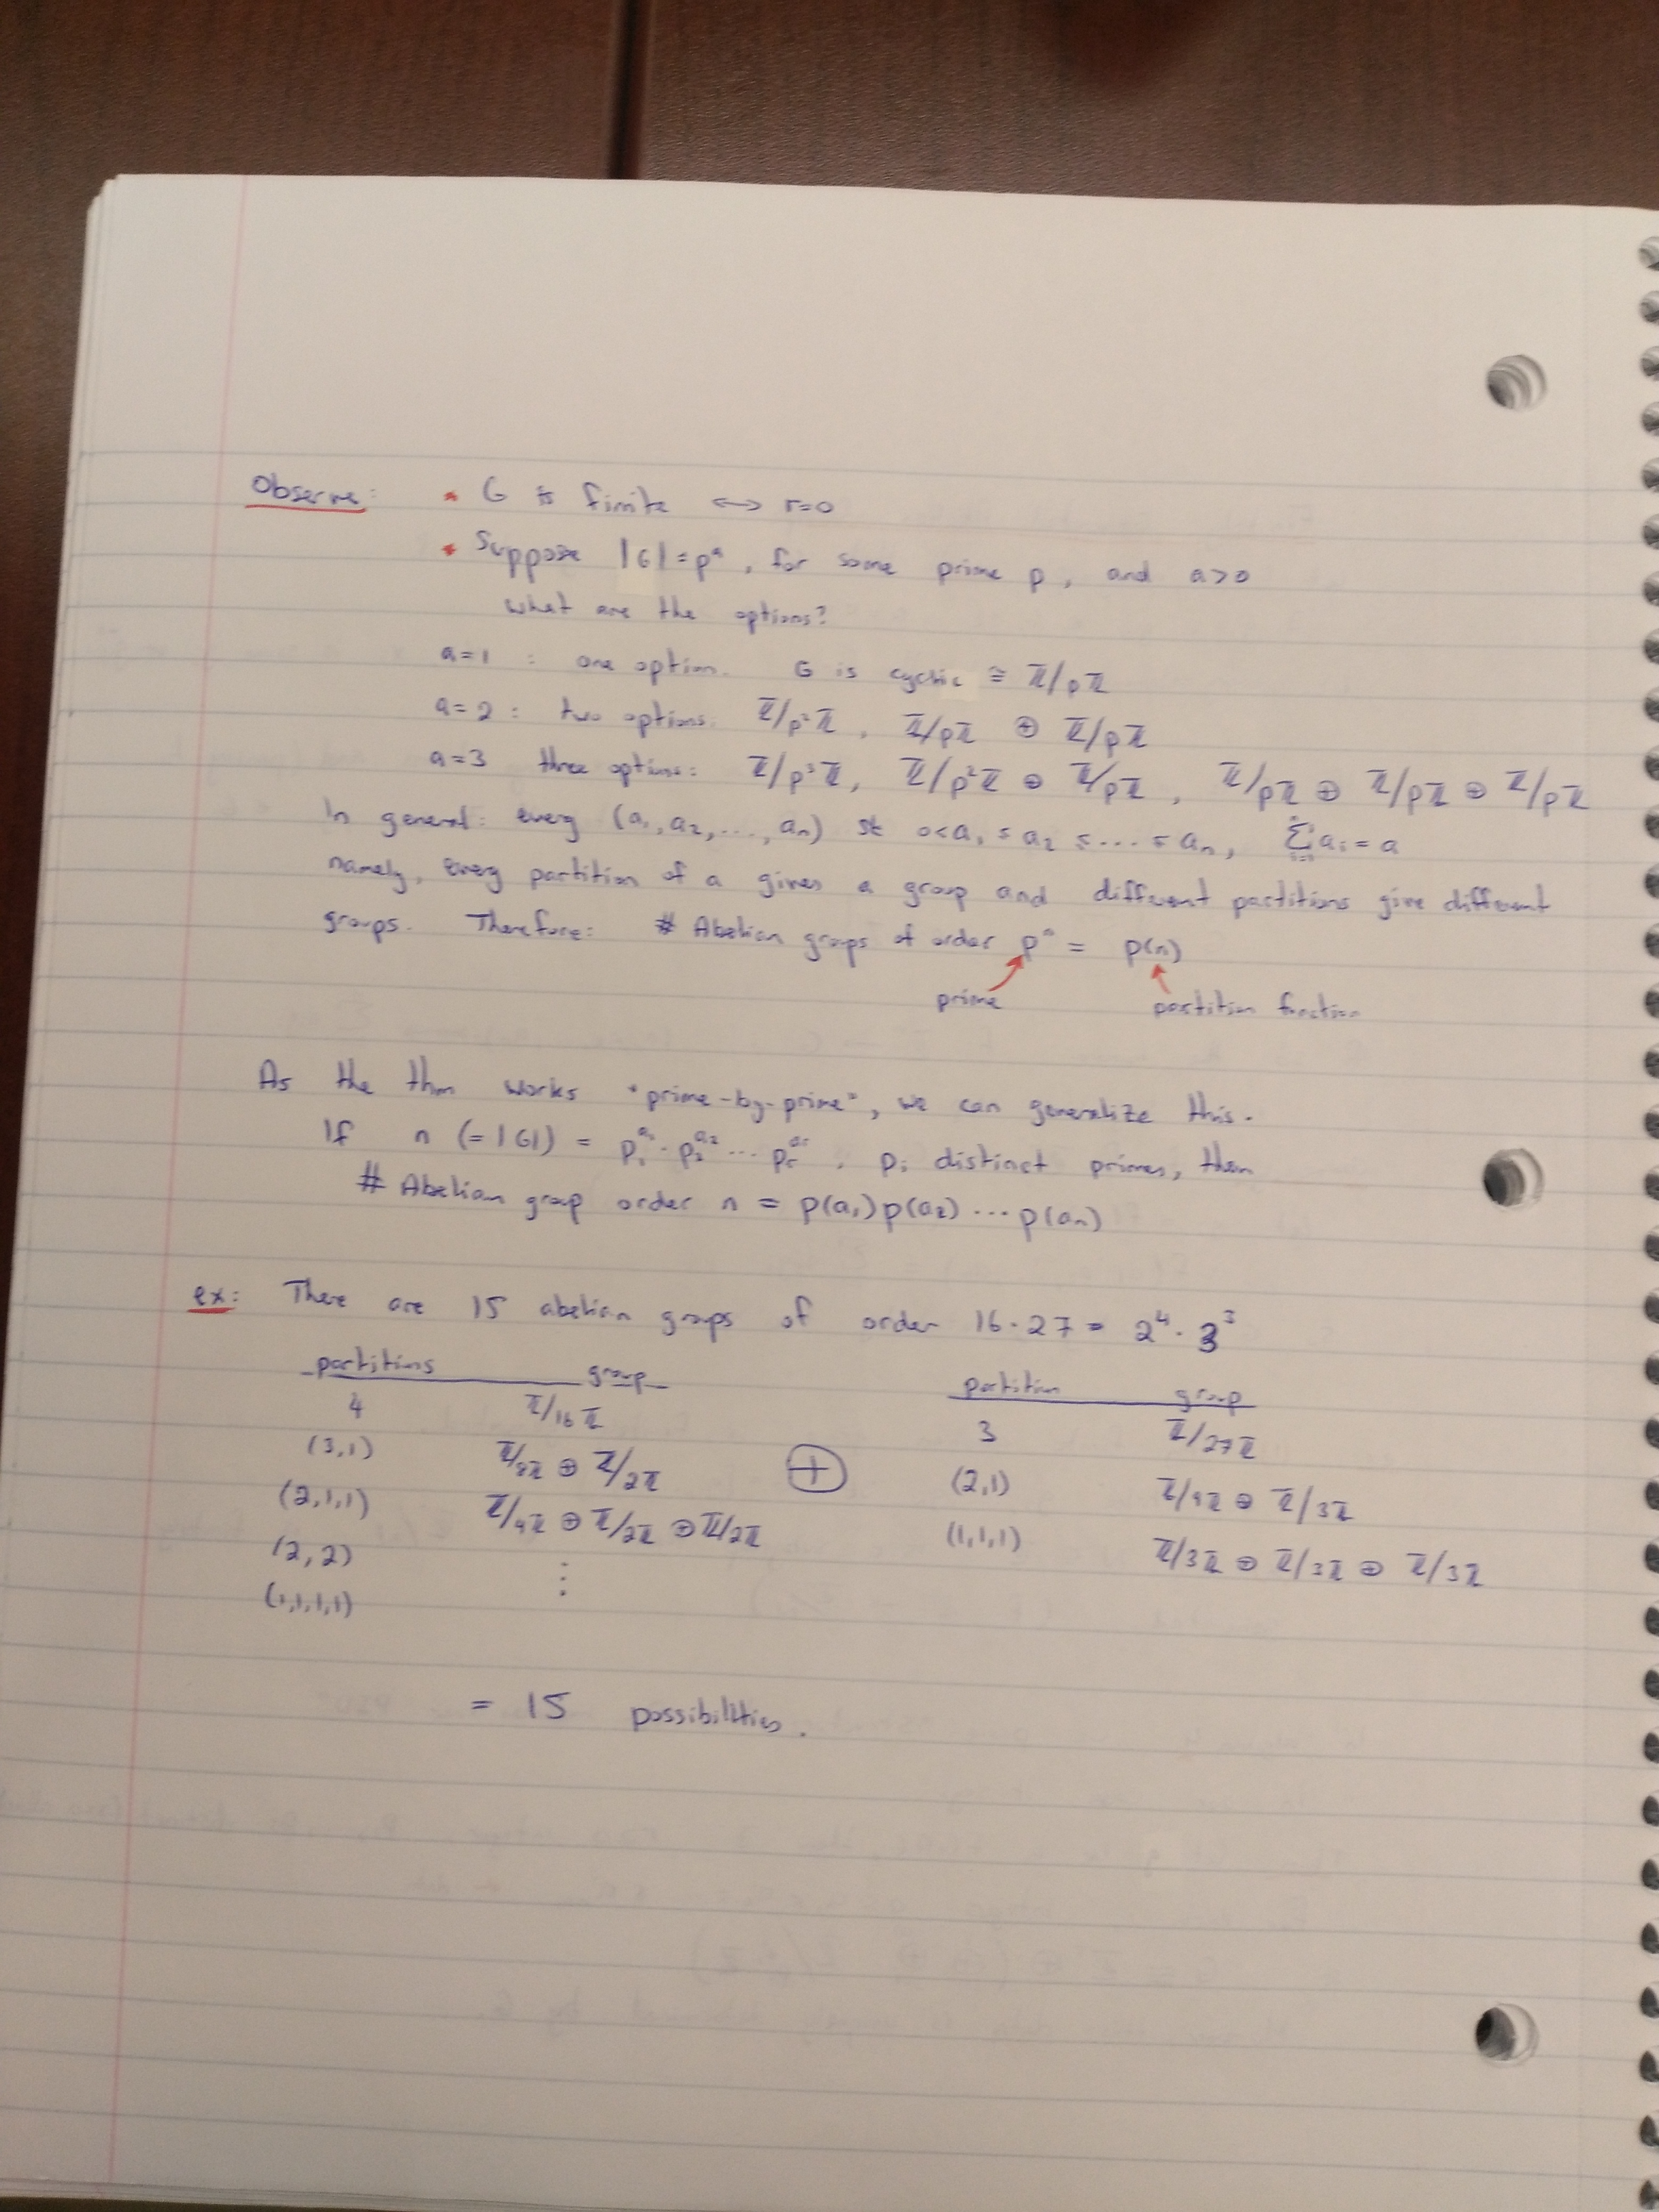 Observe: * G is finite ↔ r=0
* Suppose |G|=pᵃ, for some prime p, and a>0
what are the options?
a=1 : one option. G is cyclic ≅ ℤ/pℤ
a=2 : two options: ℤ/p²ℤ, ℤ/pℤ ⊕ ℤ/pℤ
a=3 three options: ℤ/p³ℤ, ℤ/p²ℤ ⊕ ℤ/pℤ, ℤ/pℤ ⊕ ℤ/pℤ ⊕ ℤ/pℤ
In general: every (a₁, a₂, ..., aₙ) st 0<a₁ ≤ a₂ ≤ .... ≤ aₙ, Σaᵢ = a
namely, every partition of a gives a group and different partitions give different
groups. Therefore: # Abelian groups of order pⁿ = p(n)
prime partition function
As the thm works "prime-by-prime", we can generalize this.
If n (=|G|) = p₁^a₁ · p₂^a₂ ... pᵣ^aᵣ, pᵢ distinct primes, then
# Abelian group order n = p(a₁)p(a₂) ... p(aₙ)
ex: There are 15 abelian groups of order 16·27 = 2⁴·3³
partitions group partition group
4 ℤ/16ℤ 3 ℤ/27ℤ
(3,1) ℤ/8ℤ ⊕ ℤ/2ℤ ⊕ (2,1) ℤ/9ℤ ⊕ ℤ/3ℤ
(2,1,1) ℤ/4ℤ ⊕ ℤ/2ℤ ⊕ ℤ/2ℤ (1,1,1) ℤ/3ℤ ⊕ ℤ/3ℤ ⊕ ℤ/3ℤ
(2,2) ⋮
(1,1,1,1)
= 15 possibilities.